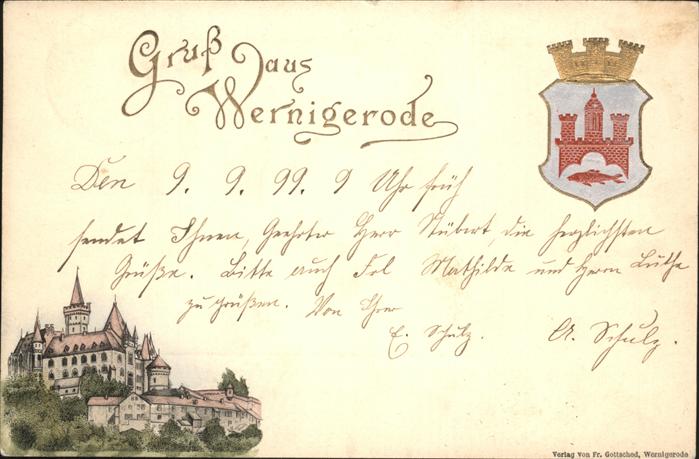 Gruß aus
Wernigerode
Den 9. 9. 99. 9 Uhr früh
sendet Ihnen, Geehrter Herr Stübert, die herzlichsten
Grüße. Bitte auch Frl Mathilde und Herrn Luthe
zu grüßen. Von Ihrer
E. Schulz. A. Schulz.
Verlag von Fr. Gottsched, Wernigerode